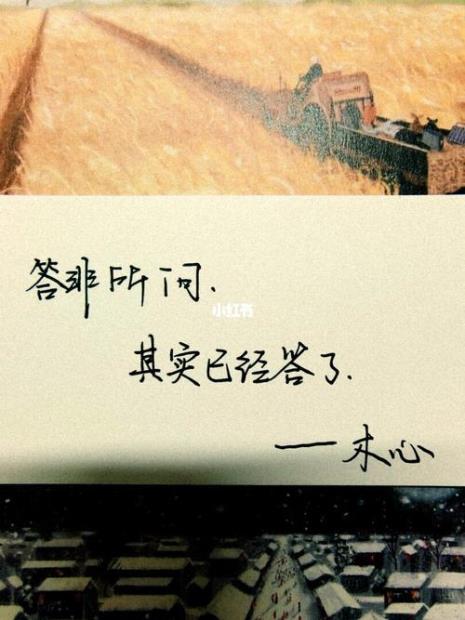 答非所问.
小红书
其实已经答了.
——木心